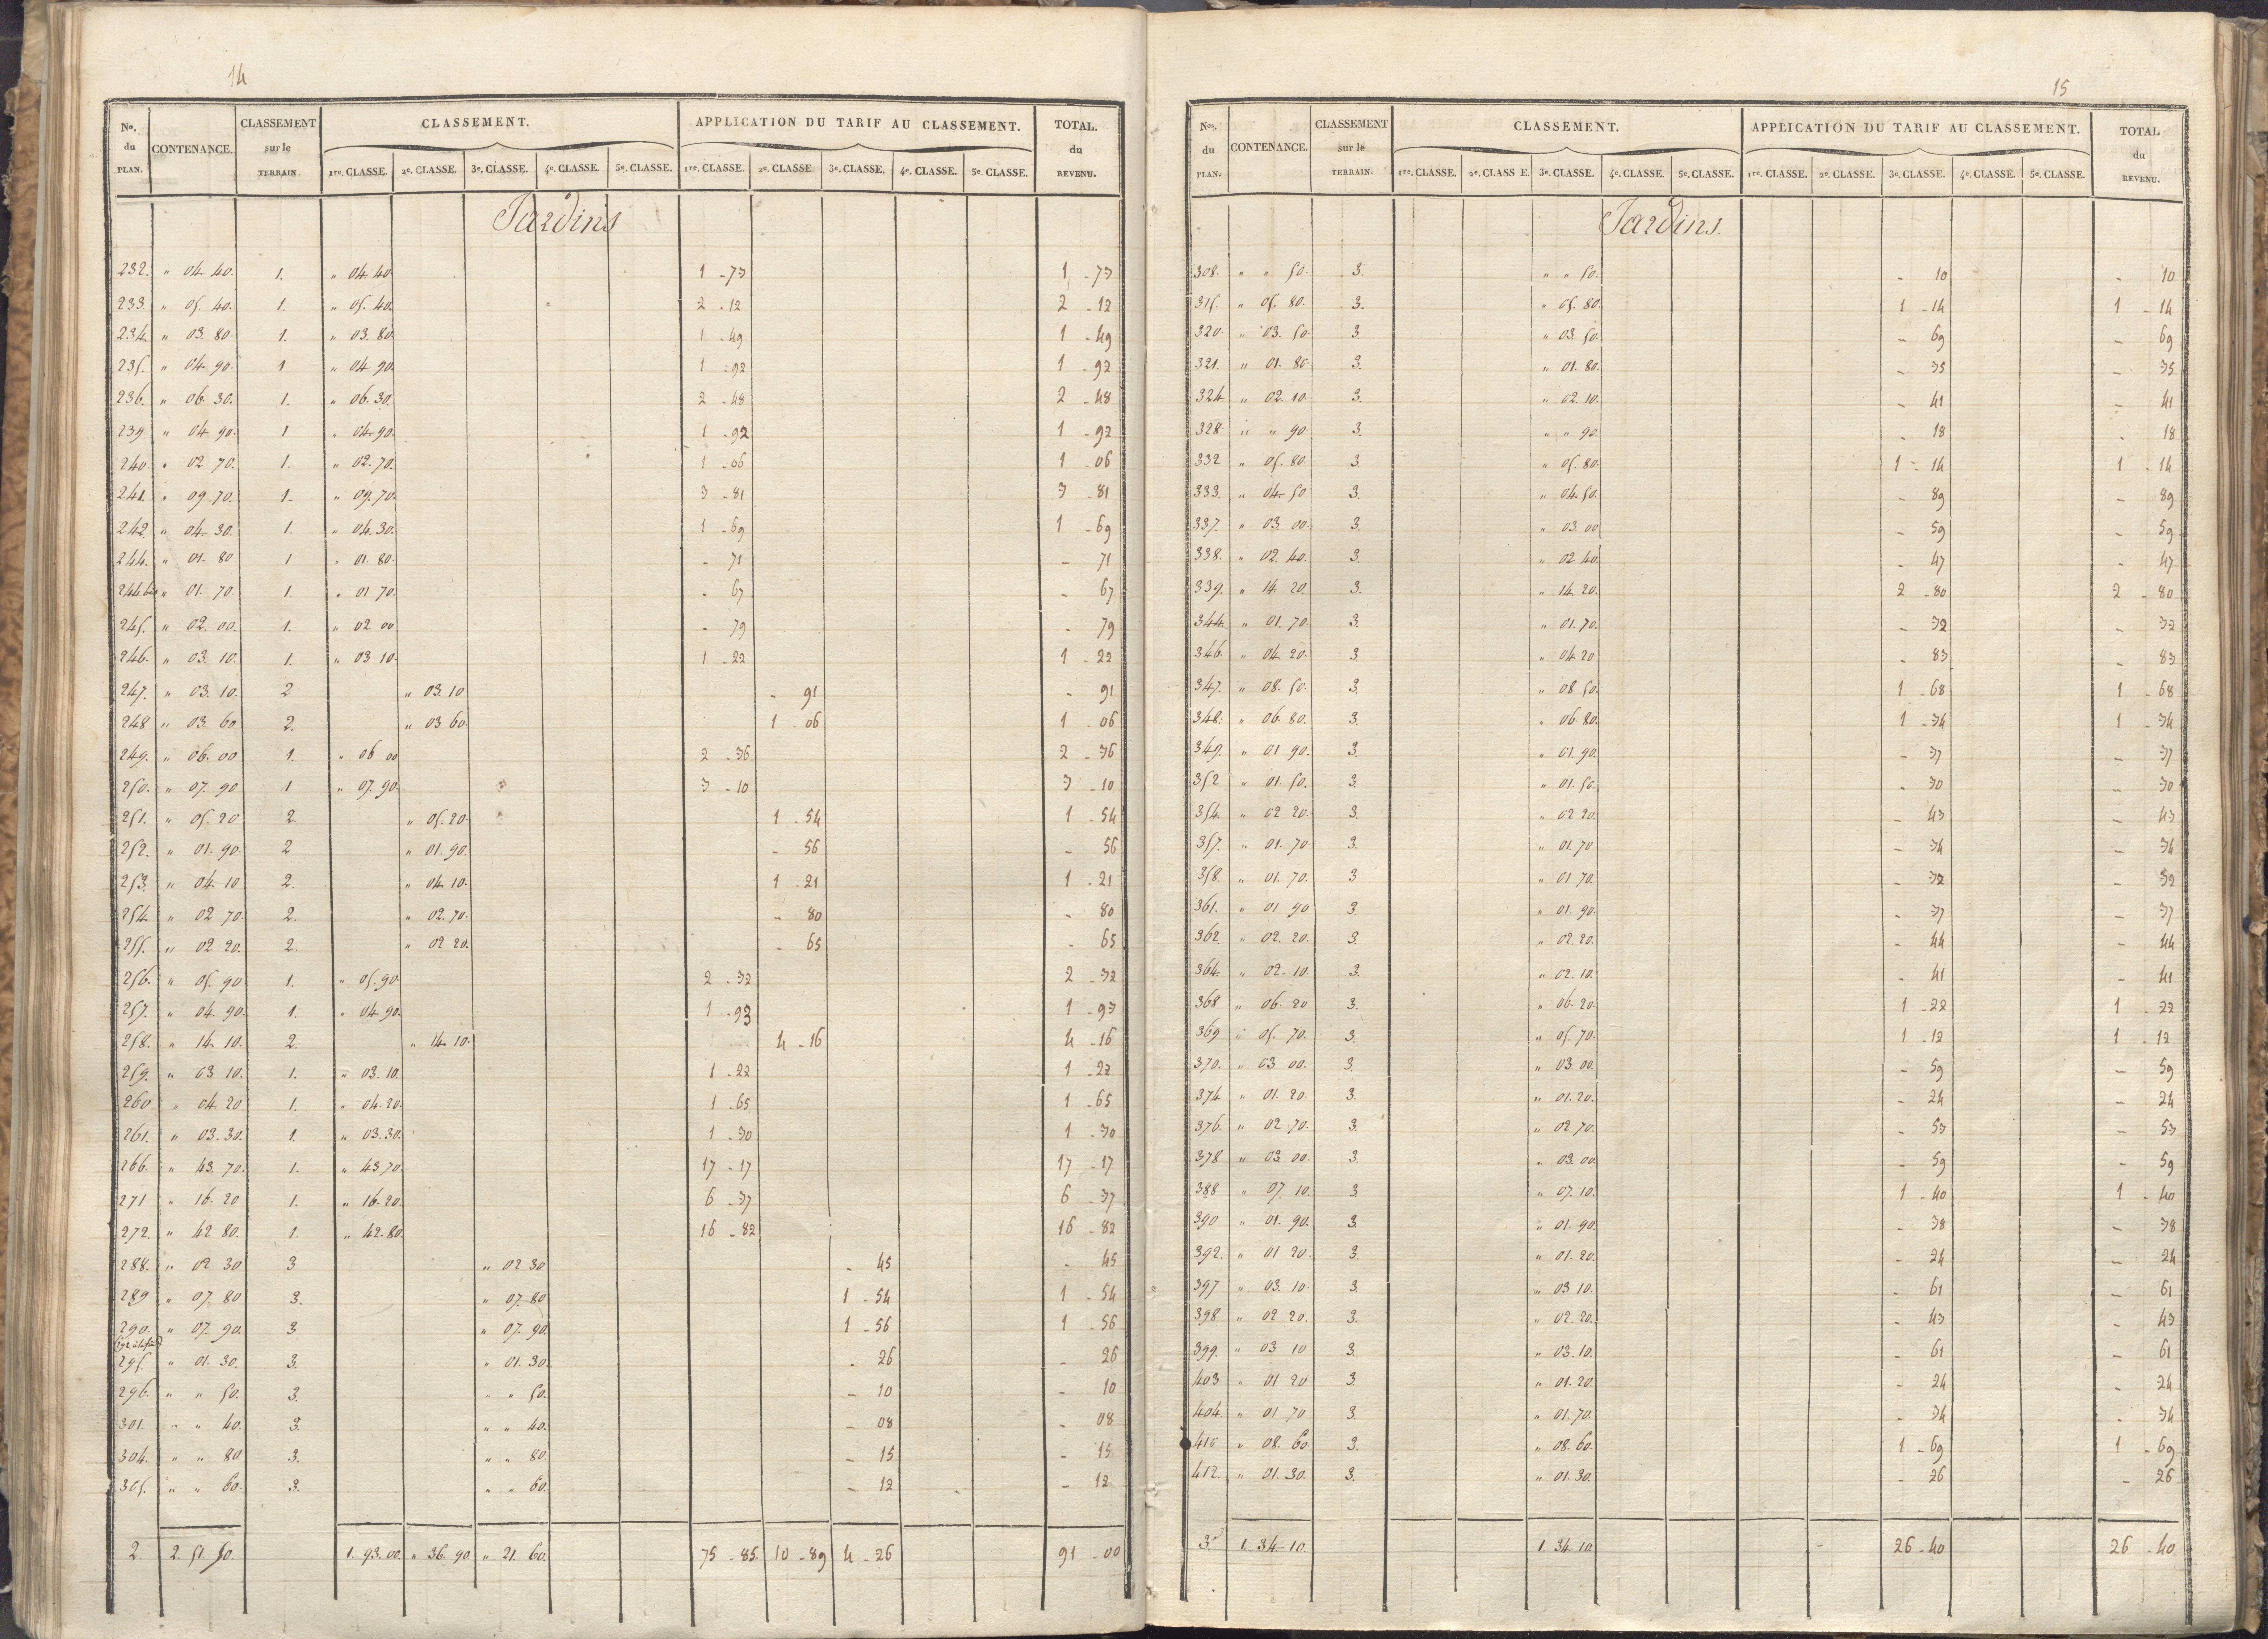 14
Nos. du PLAN. CONTENANCE. CLASSEMENT sur le TERRAIN CLASSEMENT. APPLICATION DU TARIF AU CLASSEMENT. TOTAL. du REVENU.
1re. CLASSE. 2e. CLASSE. 3e. CLASSE. 4e. CLASSE. 5e. CLASSE. 1re. CLASSE. 2e. CLASSE 3e. CLASSE. 4e. CLASSE. 5e. CLASSE.
Jardins
232. " 04. 40. 1. " 04. 40 1 - 73 1 - 73
233. " 05. 40. 1. " 05. 40. 2 - 12 2 - 12
234. " 03. 80. 1. " 03. 80 1 - 49 1 - 49
235. " 04. 90. 1 " 04 90. 1 - 92 1 - 92
236. " 06. 30. 1. " 06. 30. 2 - 48 2 - 48
239 " 04 90. 1 " 04. 90. 1 - 92 1 - 92
240. " 02 70. 1. " 02. 70. 1 - 06 1 - 06
241. " 09. 70. 1. " 09. 70. 3 - 81 3 - 81
242. " 04. 30. 1. " 04. 30. 1 - 69 1 - 69
244. " 01. 80 1 " 01. 80. - 71 - 71
244. bis " 01. 70. 1. " 01 70. - 67 - 67
245. " 02. 00. 1. " 02 00 - 79 - 79
246. " 03. 10. 1. " 03 10. 1 - 22 1 - 22
247. " 03. 10. 2 " 03. 10 - 91 - 91
248 " 03. 60 2. " 03 60. 1 - 06 1 - 06
249. " 06. 00 1. " 06 00 2 - 36 2 - 36
250. " 07. 90 1 " 07. 90. 3 - 10 3 - 10
251. " 05. 20 2. " 05. 20. 1 - 54 1 - 54
252. " 01. 90 2 " 01. 90. - 56 - 56
253. " 04. 10 2. " 04. 10. 1 - 21 1 - 21
254. " 02 70. 2. " 02. 70. - 80 - 80
255. " 02 20. 2. " 02 20. - 65 - 65
256. " 05. 90 1. " 05. 90. 2 - 32 2 - 32
257. " 04. 90. 1. " 04. 90. 1 - 93 1 - 93
258. " 14. 10. 2. " 14. 10. 4 - 16 4 - 16
259. " 03 10. 1. " 03. 10. 1 - 22 1 - 22
260 " 04. 20 1. " 04. 20. 1 - 65 1 - 65
261. " 03. 30. 1. " 03. 30. 1 - 30 1 - 30
266. " 43. 70. 1. " 43. 70. 17 - 17 17 - 17
271 " 16. 20 1. " 16. 20. 6 - 37 6 - 37
272. " 42 80. 1. " 42. 80. 16 - 82 16 - 82
288. " 02 30 3 " 02 30 - 45 - 45
289 " 07. 80 3. " 07. 80 1 - 54 1 - 54
290. " 07. 90. 3 " 07. 90. 1 - 56 1 - 56
295. " 01. 30. 3. " 01. 30. - 26 - 26
296. " " 50. 3. " " 50. - 10 - 10
301. " " 40. 3. " " 40. - 08 - 08
304. " " 80 3. " " 80. - 15 - 15
305. " " 60. 3. " " 60. - 12 - 12
2. 2. 51. 50. 1. 93. 00. " 36. 90. " 21. 60. 75 - 85. 10 - 89 4 - 26 91 - 00
15
Nos. du PLAN. CONTENANCE. CLASSEMENT sur le TERRAIN. CLASSEMENT. APPLICATION DU TARIF AU CLASSEMENT. TOTAL du REVENU.
1re. CLASSE. 2e. CLASS E. 3e. CLASSE. 4e. CLASSE. 5e. CLASSE. 1re. CLASSE. 2e. CLASSE. 3e. CLASSE. 4e. CLASSE. 5e. CLASSE.
Jardins.
308. " " 50. 3. " " 50. - 10 - 10
315. " 05. 80. 3. " 05. 80. 1 - 14 1 - 14
320. " 03. 50. 3. " 03. 50. - 69 - 69
321. " 01. 80. 3. " 01. 80. - 35 - 35
324. " 02. 10. 3. " 02. 10. - 41 - 41
328. " " 90. 3. " " 90. - 18 - 18
332 " 05. 80. 3. " 05. 80. 1 - 14 1 - 14
333. " 04. 50 3. " 04. 50. - 89 - 89
337. " 03. 00. 3. " 03. 00 - 59 - 59
338. " 02. 40. 3. " 02 40. - 47 - 47
339. " 14. 20. 3. " 14. 20. 2 - 80 2 - 80
344. " 01. 70. 3. " 01. 70. - 32 - 32
346. " 04. 20. 3. " 04. 20. - 83 - 83
347. " 08. 50. 3. " 08 50. 1 - 68 1 - 68
348. " 06. 80. 3. " 06. 80. 1 - 34 1 - 34
349. " 01 90. 3. " 01. 90. - 37 - 37
352 " 01. 50. 3. " 01. 50. - 30 - 30
354. " 02 20. 3. " 02 20. - 43 - 43
357. " 01. 70 3. " 01. 70 - 34 - 34
358. " 01. 70. 3 " 01 70. - 32 - 32
361. " 01 90 3. " 01. 90. - 37 - 37
362. " 02. 20. 3. " 02. 20. - 44 - 44
364. " 02. 10. 3. " 02. 10. - 41 - 41
368 " 06. 20 3. " 06. 20. 1 - 22 1 - 22
369 " 05. 70. 3. " 05. 70. 1 - 12 1 - 12
370. " 03 00. 3. " 03. 00. - 59 - 59
374. " 01. 20. 3. " 01. 20. - 24 - 24
376. " 02 70. 3. " 02 70. - 53 - 53
378 " 03. 00. 3. " 03. 00. - 59 - 59
388 " 07. 10. 3 " 07. 10. 1 - 40 1 - 40
390 " 01. 90. 3. " 01. 90. - 38 - 38
392. " 01 20. 3. " 01. 20. - 24 - 24
397 " 03. 10. 3. " 03 10. - 61 - 61
398 " 02 20. 3. " 02. 20. - 43 - 43
399. " 03 10 3. " 03. 10. - 61 - 61
403 " 01 20 3. " 01. 20. - 24 - 24
404. " 01 70 3. " 01. 70. - 34 - 34
" 08. 60. 3. " 08. 60. 1 - 69 1 - 69
412. " 01. 30. 3. " 01. 30. - 26 - 26
3. 1. 34. 10. 1. 34. 10 26 - 40 26 - 40